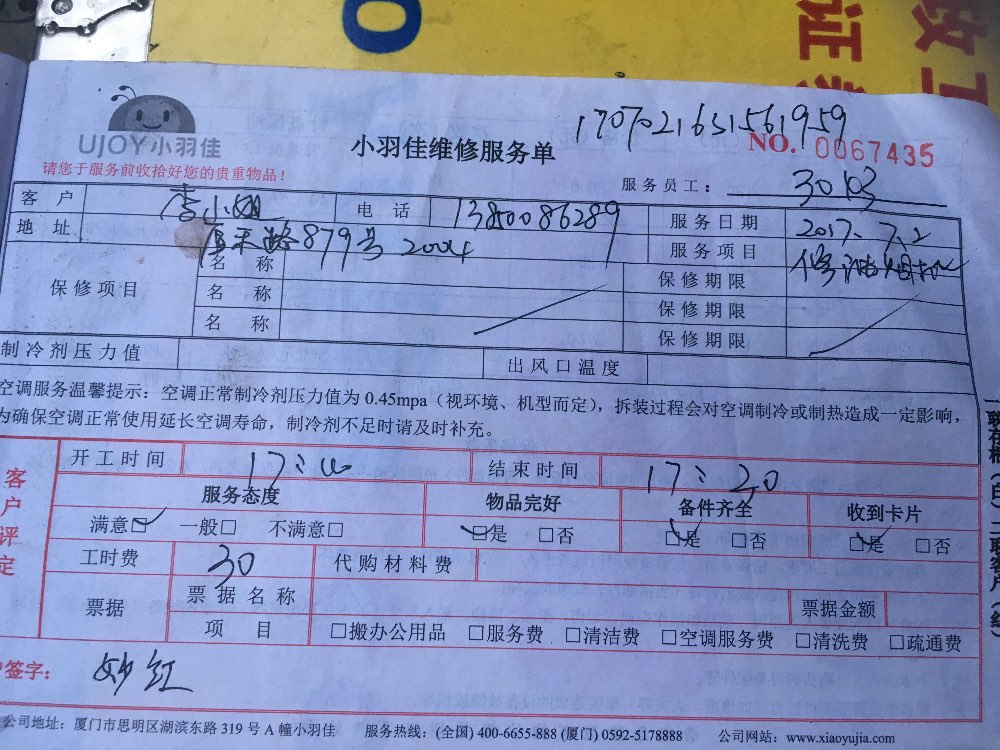 证
UJOY小羽佳
170702163156​1959
小羽佳维修服务单
NO. 0067435
请您于服务前收拾好您的贵重物品！
服务员工： 30103
客 户 李小姐 电 话 13850086289 服务日期 2017.7.2
地 址 879号 2004 服务项目 修油烟机
保修项目 名 称 保修期限
名 称 保修期限
名 称 保修期限
制冷剂压力值 出风口温度
空调服务温馨提示：空调正常制冷剂压力值为 0.45mpa（视环境、机型而定），拆装过程会对空调制冷或制热造成一定影响，
为确保空调正常使用延长空调寿命，制冷剂不足时请及时补充。
客户评定
开工时间 结束时间 17：20
服务态度 物品完好 备件齐全 收到卡片
满意☑ 一般□ 不满意□ ☑是 □否 ☑是 □否 ☑是 □否
工时费 30 代购材料费
票据 票据名称 票据金额
项 目 □搬办公用品 □服务费 □清洁费 □空调服务费 □清洗费 □疏通费
户签字： 妙红
公司地址：厦门市思明区湖滨东路 319 号 A 幢小羽佳 服务热线：(全国) 400-6655-888 (厦门) 0592-5178888 公司网站：www.xiaoyujia.com